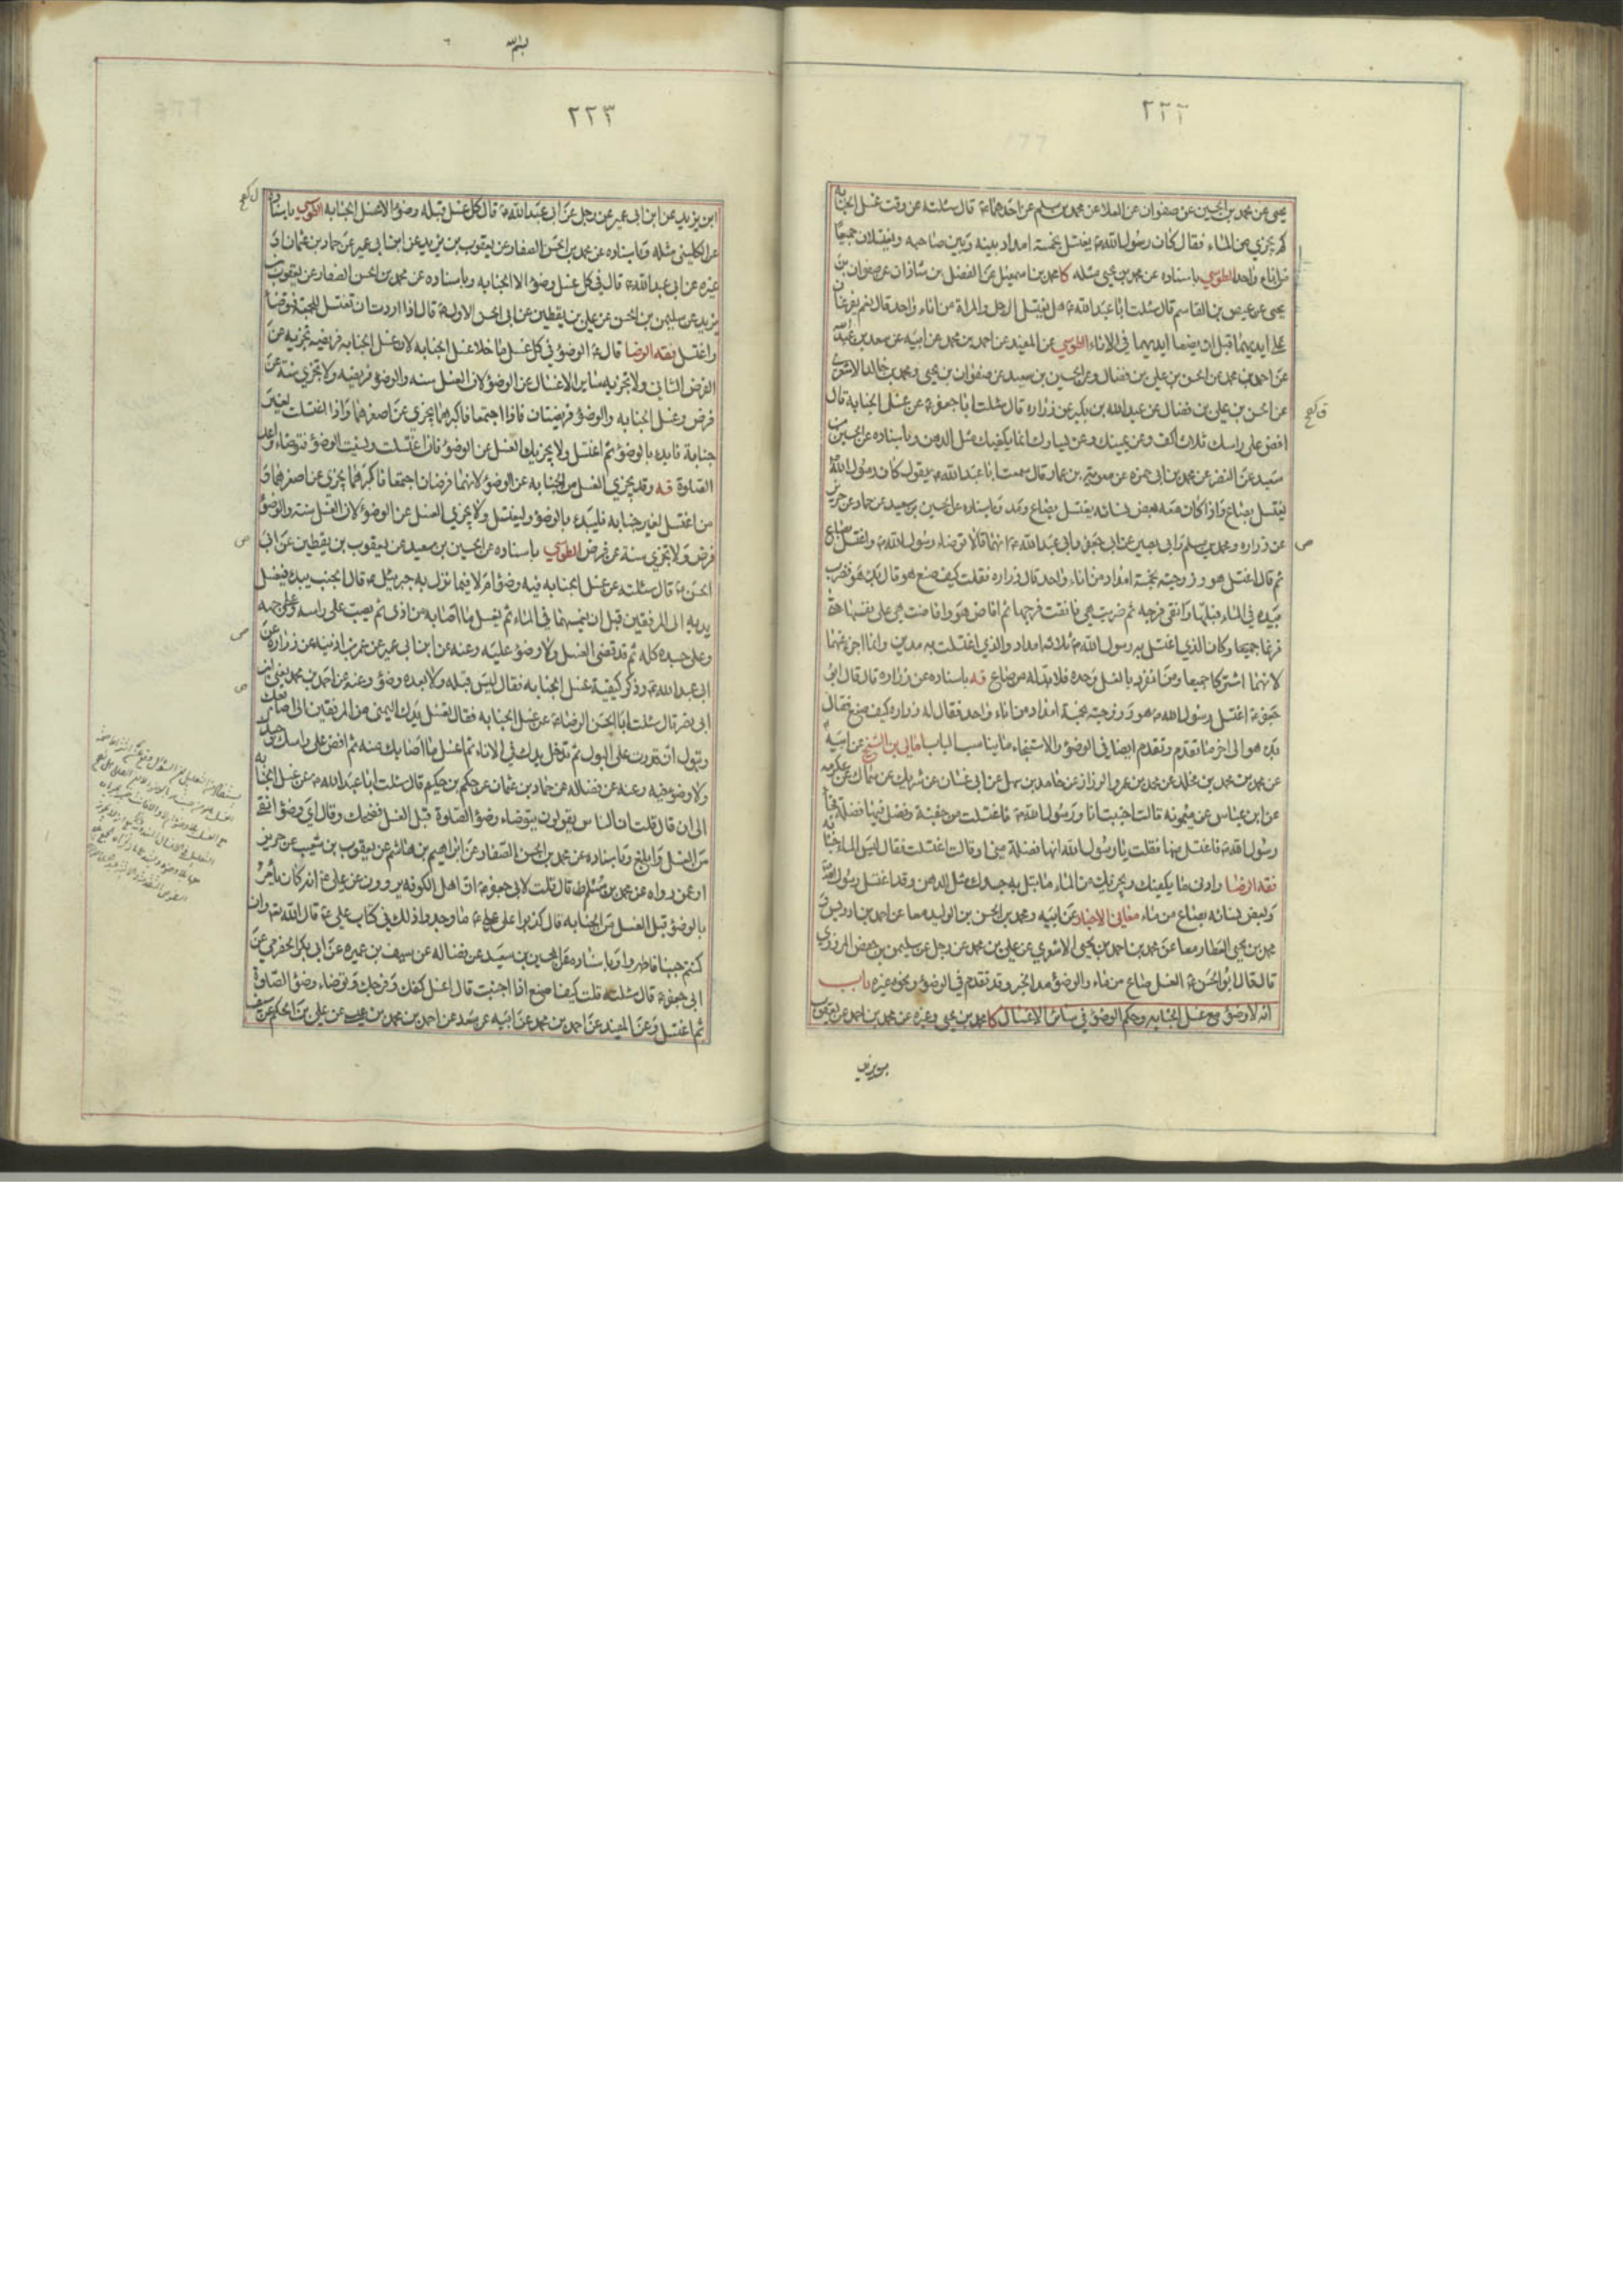 ٢٢٢
يحيى عن محمد بن الحسين عن صفوان عن العلا عن محمد بن مسلم عن احدهما ع قال سئلته عن وقت غسل الجنابه
كم يجزي من الماء فقال كان رسول الله ص يغتسل بخمسة امداد بينه وبين صاحبه ويغتسلان جميعا
من اناء واحد الطوسي باسناده عن محمد بن يحيى مثله كا محمد بن اسمعيل عن الفضل بن شاذان عن صفوان بن
يحيى عن عيص بن القاسم قال سئلت ابا عبد الله ع هل يغتسل الرجل والمراة من اناء واحد قال نعم يفرغان
على ايديهما قبل ان يضعا ايديهما في الاناء الطوسي عن المفيد عن احمد بن محمد عن ابيه عن سعد بن عبد الله
عن احمد بن محمد عن الحسن بن علي بن فضال وعن الحسين بن سعيد عن صفوان بن يحيى ومحمد بن خالد الاشعري
عن الحسن بن علي بن فضال عن عبد الله بن بكير عن زراره قال سئلت ابا جعفر ع عن غسل الجنابة قال
افض على راسك ثلاث اكف وعن يمينك وعن يسارك انما يكفيك مثل الدهن وباسناده عن الحسين بن
سعيد عن النضر عن محمد بن ابي حمزه عن معوية بن عمار قال سمعت ابا عبد الله ع يقول كان رسول الله ص
يغتسل بصاع واذا كان معه بعض نسائه يغتسل بصاع ومد وباسناده عن الحسين بن سعيد عن حماد عن حريز
عن زراره ومحمد بن مسلم وابي بصير عن ابي جعفر وابي عبد الله ع انهما قالا توضاء رسول الله ص واغتسل بصاع
ثم قال اغتسل هو وزوجته بخمسة امداد من اناء واحد قال زراره فقلت كيف صنع هو قال بدء هو فضرب
بيده في الماء قبلها وانقى فرجه ثم ضربت هي فانقت فرجها ثم افاض هو وافاضت هي على نفسها حتى
فرغا جميعا وكان الذي اغتسل به رسول الله ص ثلاثه امداد والذي اغتسلت به مدين وانما اجزء عنهما
لانهما اشتركا جميعا ومن انفرد بالغسل وحده فلا بد له من صاع فيه باسناده عن زراره قال قال ابو
جعفر ع اغتسل رسول الله ص هو وزوجته بخمسة امداد من اناء واحد فقال له زراره كيف صنع فقال
بدء هو الى اخر ما تقدم وتقدم ايضا في الوضوء والاستنجاء ما يناسب الباب امالي بن الشيخ عن ابيه
عن محمد بن محمد بن مخلد عن محمد بن عمرو الرزاز عن حامد بن سهل عن ابي غسان عن شريك عن سماك عن عكرمه
عن ابن عباس عن ميمونه قالت اجنبت انا ورسول الله ص فاغتسلت من جفنة وفضل فيها فضلة فجاء
رسول الله ص فاغتسل منها فقلت يا رسول الله انها فضلة مني او قالت اغتسلت فقال ليس الماء جنابه
فقه الرضا وادنى ما يكفيك ويجزيك من الماء ما تبل به جسدك مثل الدهن وقد اغتسل رسول الله ص
وبعض نسائه بصاع من ماء معاني الاخبار عن ابيه ومحمد بن الحسن بن الوليد معا عن احمد بن ادريس و
محمد بن يحيى العطار معا عن محمد بن احمد بن يحيى الاشعري عن علي بن محمد عن رجل عن سليمن بن حفص المروزي
قال قال ابو الحسن ع الغسل صاع من ماء والوضوء مد الخبر وقد تقدم في الوضوء ونحوه غيره باب
انه لا وضوء مع غسل الجنابه وحكم الوضوء في سائر الاغسال كا محمد بن يحيى وغيره عن محمد بن احمد عن يعقوب
بن يزيد
٢٢٣
ابن يزيد عن ابن ابي عمير عن رجل عن ابي عبد الله ع قال كل غسل قبله وضوء الا غسل الجنابه الطوسي باسناده
عن الكليني مثله وباسناده عن محمد بن الحسن الصفار عن يعقوب بن يزيد عن ابن ابي عمير عن حماد بن عثمان او
غيره عن ابي عبد الله ع قال في كل غسل وضوء الا الجنابه وباسناده عن محمد بن الحسن الصفار عن يعقوب بن
يزيد عن سليمن بن الحسن عن علي بن يقطين عن ابي الحسن الاول ع قال اذا اردت ان تغتسل للجمعة فتوضأ
واغتسل فقه الرضا قال ع الوضوء في كل غسل ما خلا غسل الجنابه لان غسل الجنابه فريضه تجزيه عن
الفرض الثاني ولا تجزيه ساير الاغسال عن الوضوء لان الغسل سنه والوضوء فريضه ولا تجزي سنة عن
فرض وغسل الجنابه والوضوء فريضتان فاذا اجتمعا فاكبرهما يجزي عن اصغرهما واذا اغتسلت لغير
جنابة فابدء بالوضوء ثم اغتسل ولا يجزيك الغسل عن الوضوء فان اغتسلت ونسيت الوضوء فتوضاء واعد
الصلوة فيه وقد يجزي الغسل من الجنابه عن الوضوء لانهما فرضان اجتمعا فاكبرهما يجزي عن اصغرهما و
من اغتسل لغير جنابه فليبدء بالوضوء وليغتسل ولا يجزي الغسل عن الوضوء لان الغسل سنة والوضوء
فرض ولا تجزي سنة عن فرض الطوسي باسناده عن الحسين بن سعيد عن يعقوب بن يقطين عن ابي
الحسن ع قال سئلته عن غسل الجنابه فيه وضوء ام لا فيما نزل به جبرئيل ع قال الجنب يبدء فيغسل
يديه الى المرفقين قبل ان يغمسهما في الماء ثم يغسل ما اصابه من اذى ثم يصب على راسه وعلى وجهه
وعلى جسده كله ثم قد قضى الغسل ولا وضوء عليه وعنه عن ابن ابي عمير عن عمر بن اذينه عن زراره عن
ابي عبد الله ع وذكر كيفية غسل الجنابه فقال ليس قبله ولا بعده وضوء وعنه عن احمد بن محمد يعني ابن
ابي نصر قال سئلت ابا الحسن الرضا ع عن غسل الجنابه فقال تغسل يدك اليمنى من المرفقين الى اصابعك
وتبول ان قدرت على البول ثم تدخل يدك في الاناء ثم اغسل ما اصابك منه ثم افض على راسك وجسدك
ولا وضوء فيه وعنه عن فضاله عن حماد بن عثمان عن حكم بن حكيم قال سئلت ابا عبد الله ع عن غسل الجنابه
الى ان قال قلت ان الناس يقولون يتوضاء وضوء الصلوة قبل الغسل فضحك وقال اي وضوء انقى
من الغسل وابلغ وباسناده عن محمد بن الحسن الصفار عن ابراهيم بن هاشم عن يعقوب بن شعيب عن حريز
او عمن رواه عن محمد بن مسلم قال قلت لابي جعفر ع ان اهل الكوفه يروون عن علي ع انه كان يأمر
بالوضوء قبل الغسل من الجنابه قال كذبوا على علي ع ما وجدوا ذلك في كتاب علي ع قال الله تع وان
كنتم جنبا فاطهروا وباسناده عن الحسين بن سعيد عن فضاله عن سيف بن عميره عن ابي بكر الحضرمي عن
ابي جعفر ع قال سئلته قلت كيف اصنع اذا اجنبت قال اغسل كفك وفرجك وتوضاء وضوء الصلوة
ثم اغتسل وعن المفيد عن احمد بن محمد عن ابيه عن سعد عن احمد بن محمد بن عيسى عن علي بن الحكم عن سيف